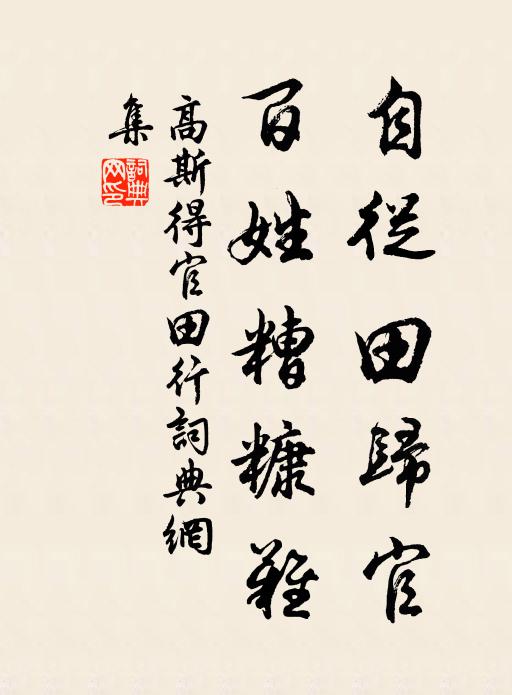 自從田歸官
百姓糟糠難
高斯得官田行詞典網
集
詞典
网印